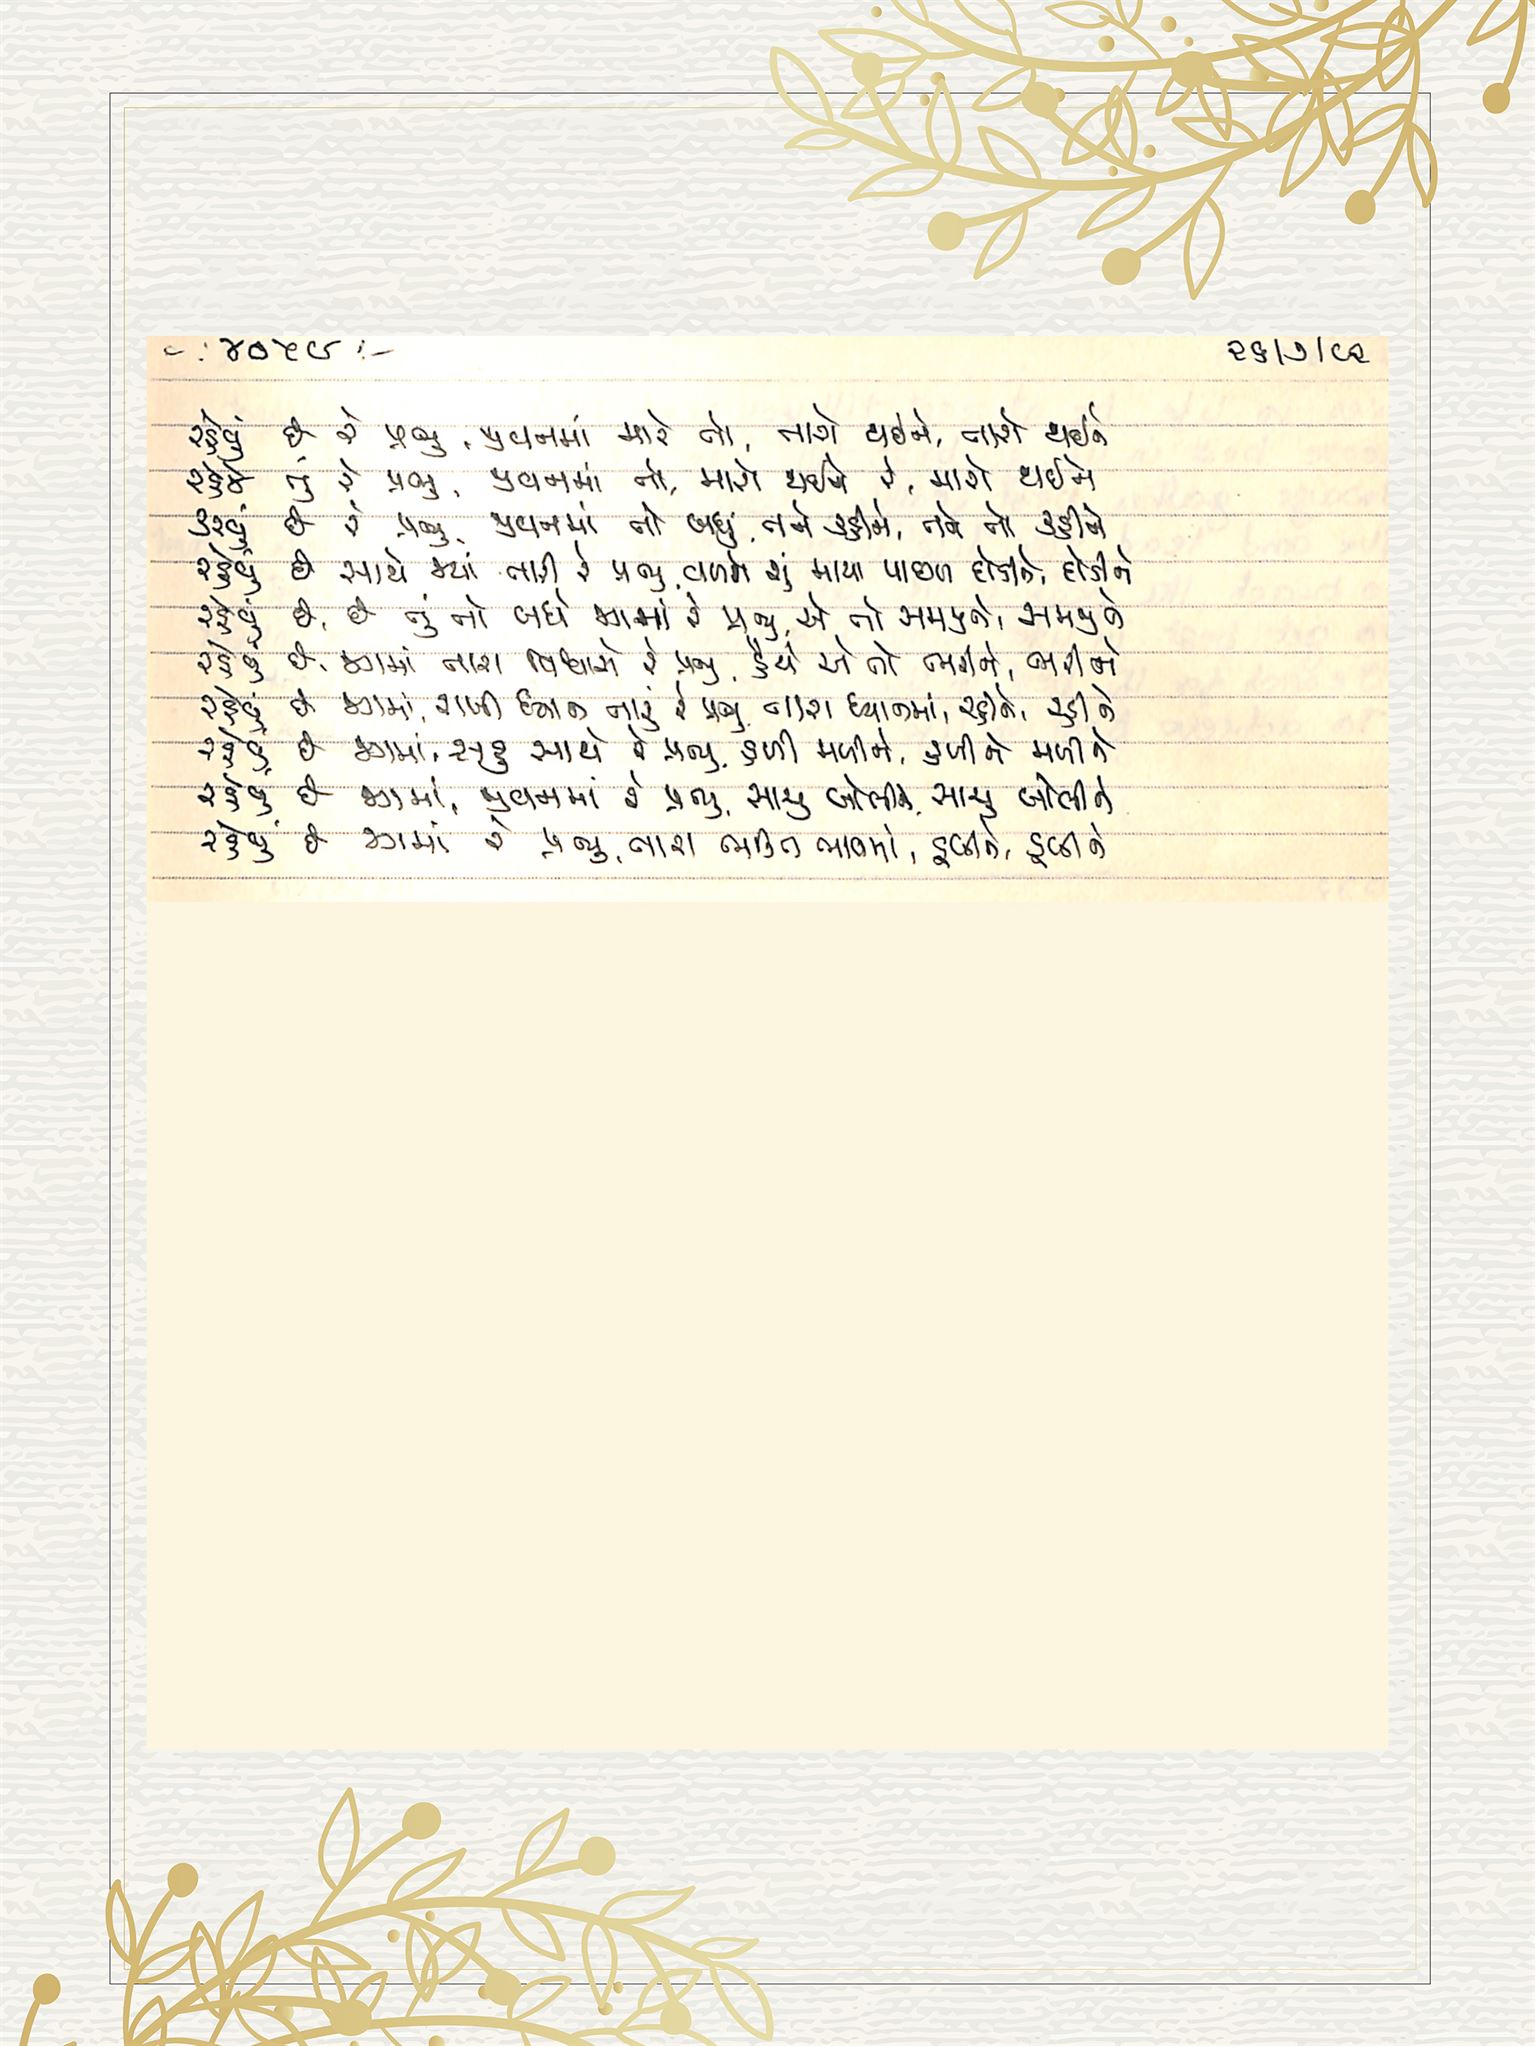 -: ૪૦૫૯ :-
૨૬/૭/૯૨
રહેવું છે રે પ્રભુ, જીવનમાં મારે તો, તારો થઈને, તારો થઈને
રહેજે તું રે પ્રભુ, જીવનમાં તો, મારો થઈને રે, મારો થઈને
કરવું છે રે પ્રભુ, જીવનમાં તો બધું, તને કહીને, તને તો કહીને
રહેવું છે સાથે જ્યાં તારી રે પ્રભુ, વળશે શું માયા પાછળ દોડીને, દોડીને
રહેવું છે, છે તું તો બધે જગમાં રે પ્રભુ, એ તો સમજીને, સમજીને
રહેવું છે, જગમાં તારા વિશ્વાસે રે પ્રભુ, હૈયે એ તો ભરીને, ભરીને
રહેવું છે જગમાં, રાખી ધ્યાન તારું રે પ્રભુ, તારા ધ્યાનમાં, રહીને, રહીને
રહેવું છે જગમાં, સહુ સાથે રે પ્રભુ, હળી મળીને, હળીને મળીને
રહેવું છે જગમાં, જીવનમાં રે પ્રભુ, સાચું બોલીને, સાચું બોલીને
રહેવું છે જગમાં રે પ્રભુ, તારા ભક્તિ ભાવમાં, ડૂબીને, ડૂબીને